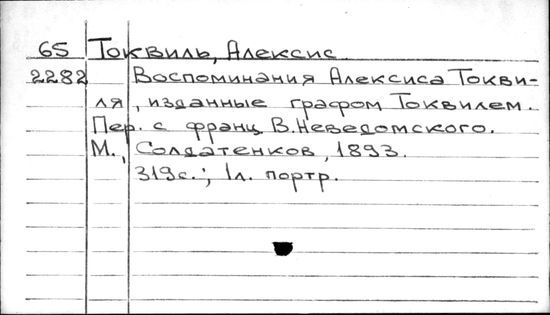 65 Токвиль, Алексис
2282 Воспоминания Алексиса Токви-
ля, изданные графом Токвилем.
Пер. с франц. В. Неведомского.
М., Солдатенков, 1893.
319с.; 1л. портр.